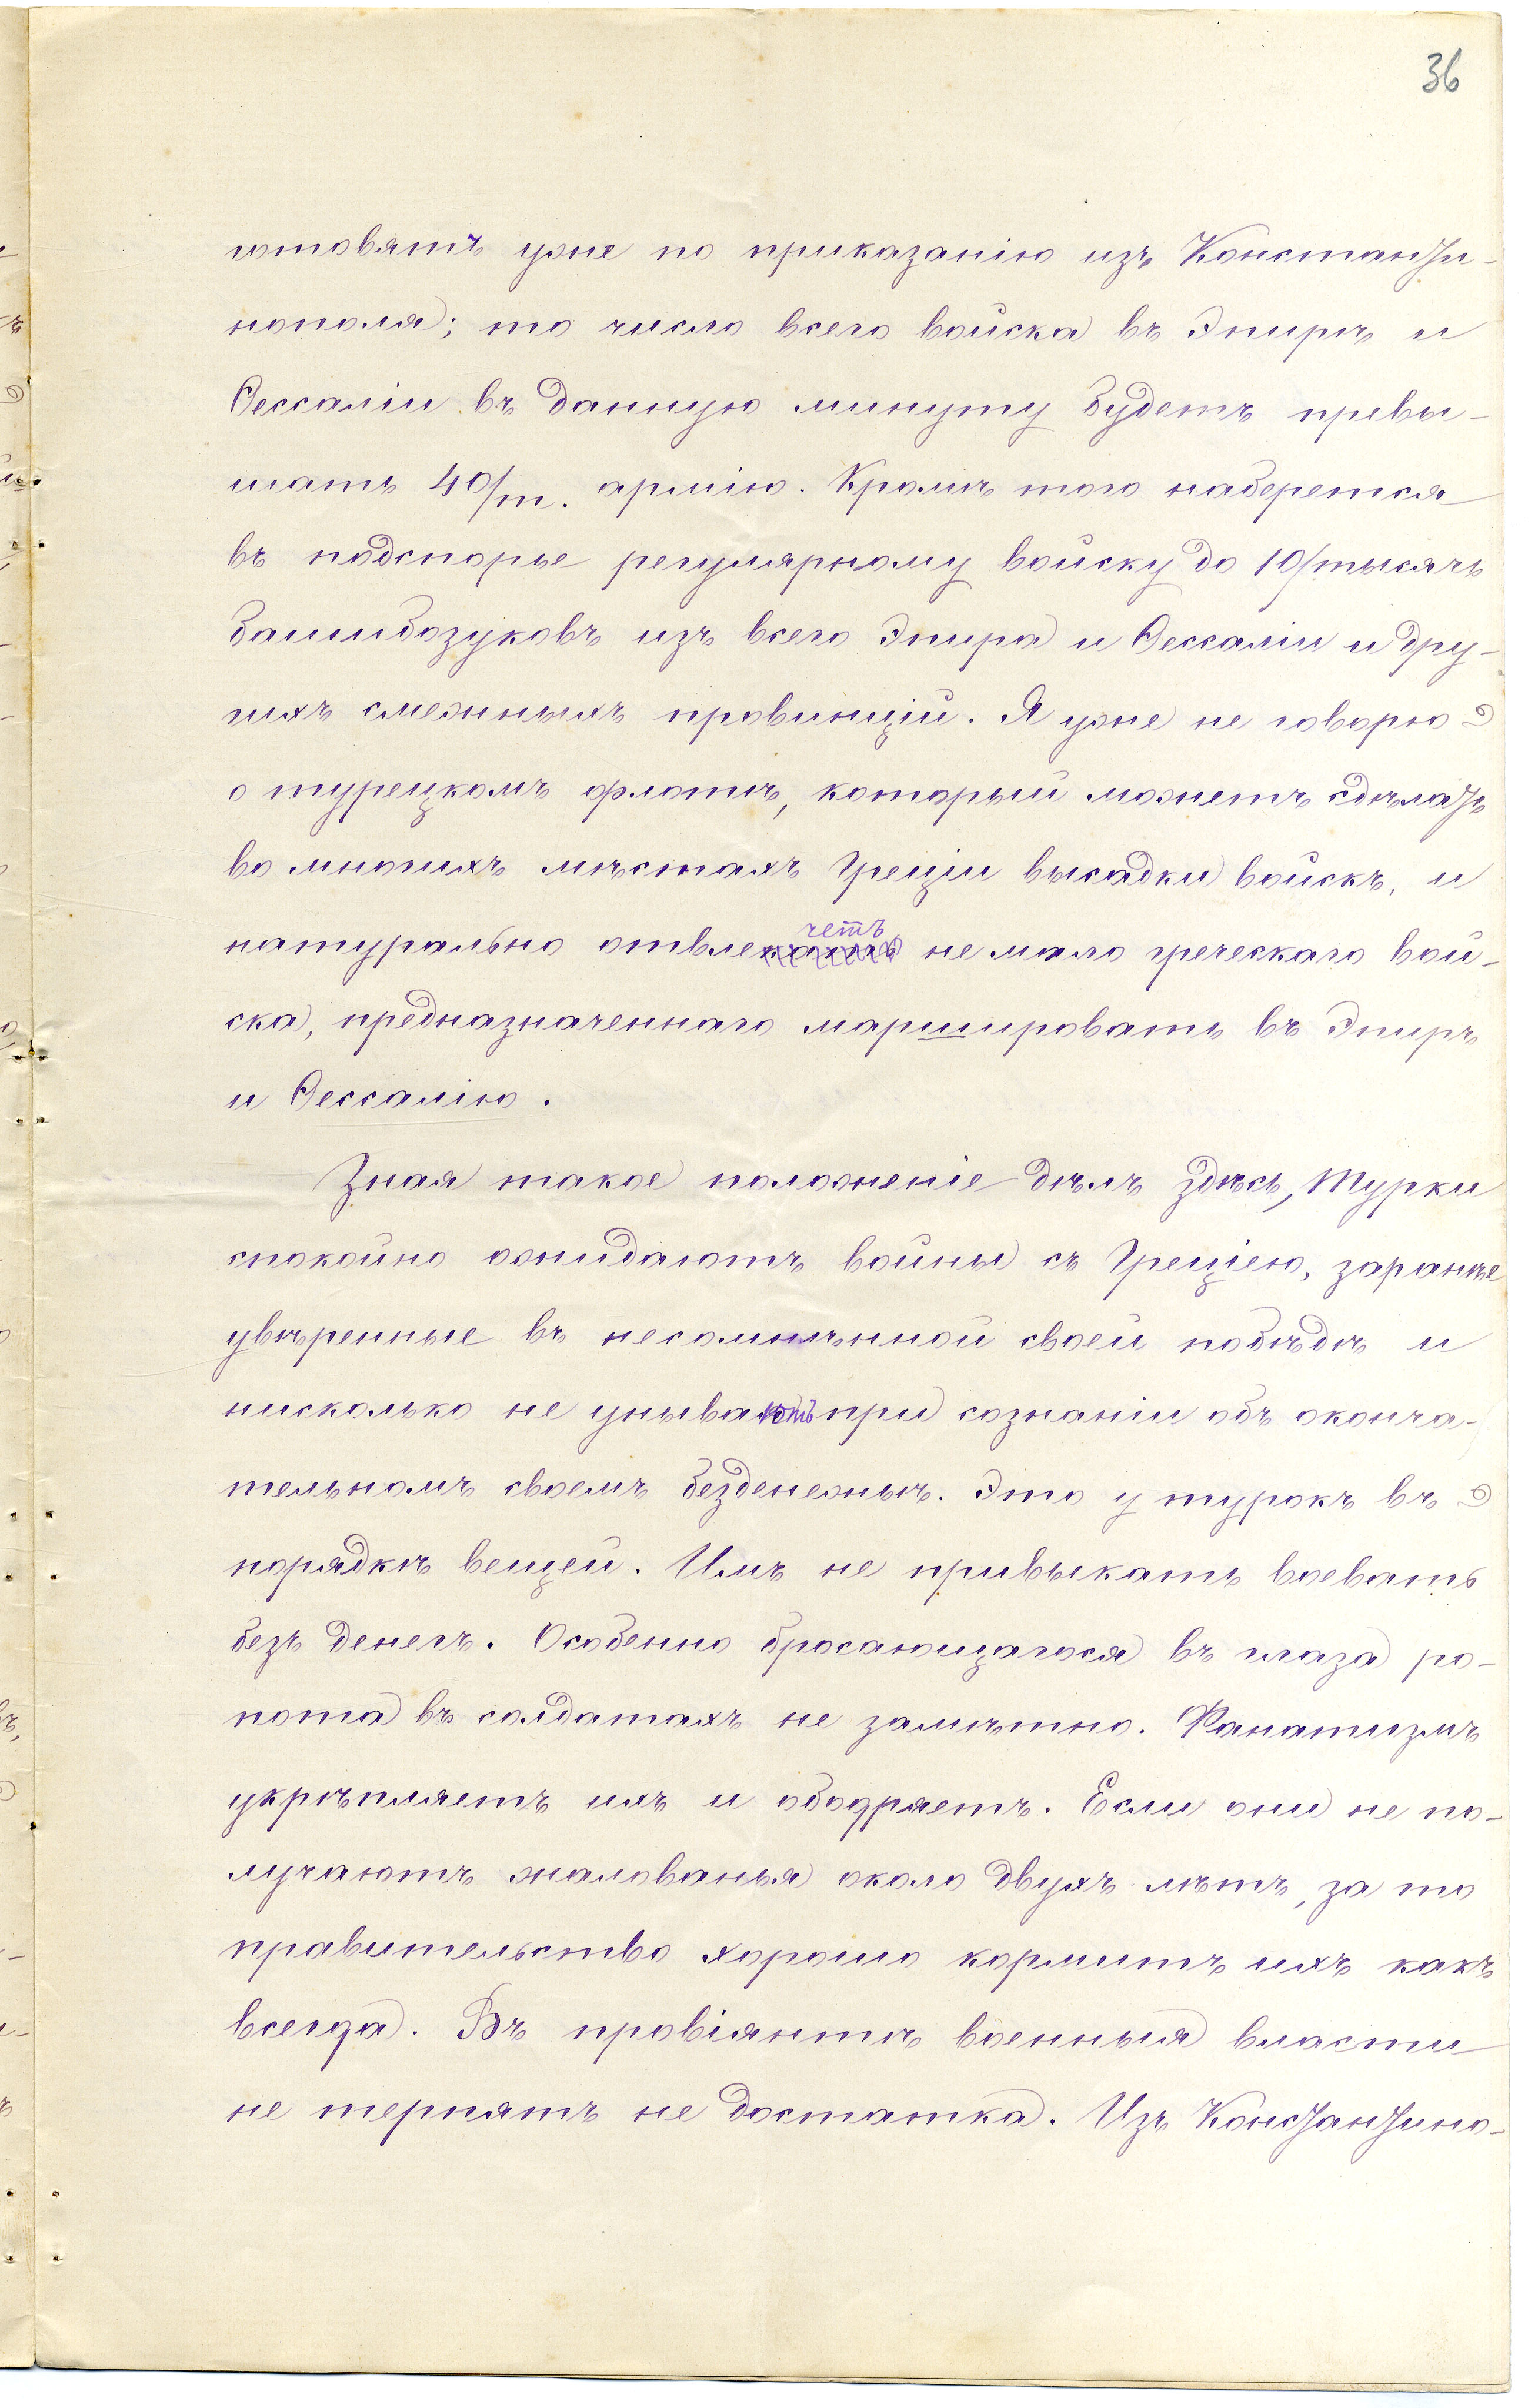 36
готовятъ уже по приказанію изъ Константи-
нополя; то число всего войска въ Эпирѣ и
Ѳессаліи въ данную минуту будетъ превы-
шать 40/т. армію. Кромѣ того наберется
въ подспорье регулярному войску до 10/тысячъ
башибозуковъ изъ всего Эпира и Ѳессаліи и дру-
гихъ смежныхъ провинцій. Я уже не говорю
о турецкомъ флотѣ, который можетъ сдѣлать
во многихъ мѣстахъ Греціи высадки войскъ, и
натурально отвлечетъ не мало греческаго вой-
ска, предназначеннаго маршировать въ Эпиръ
и Ѳессалію.
Зная такое положеніе дѣлъ здѣсь, Турки
спокойно ожидаютъ войны съ Греціею, заранѣе
увѣренные въ несомнѣнной своей побѣдѣ и
нисколько не унываютъ при сознаніи объ оконча-
тельномъ своемъ безденежьѣ. Это у турокъ въ
порядкѣ вещей. Имъ не привыкать воевать
безъ денегъ. Особенно бросающагося въ глаза ро-
пота въ солдатахъ не замѣтно. Фанатизмъ
укрѣпляетъ ихъ и ободряетъ. Если они не по-
лучаютъ жалованья около двухъ лѣтъ, за то
правительство хорошо кормитъ ихъ какъ
всегда. Въ провіянтѣ военныя власти
не терпятъ не достатка. Изъ Константино-